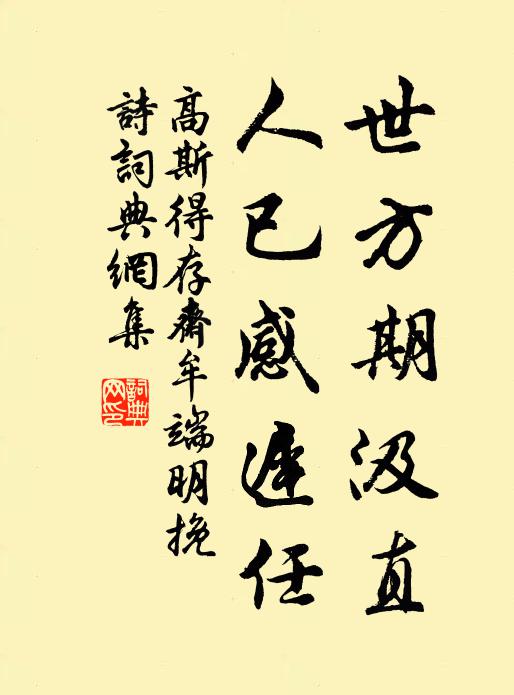 世方期汲直
人已感遲任
高斯得存齋牟端明挽
詩詞典網集
詞典网印